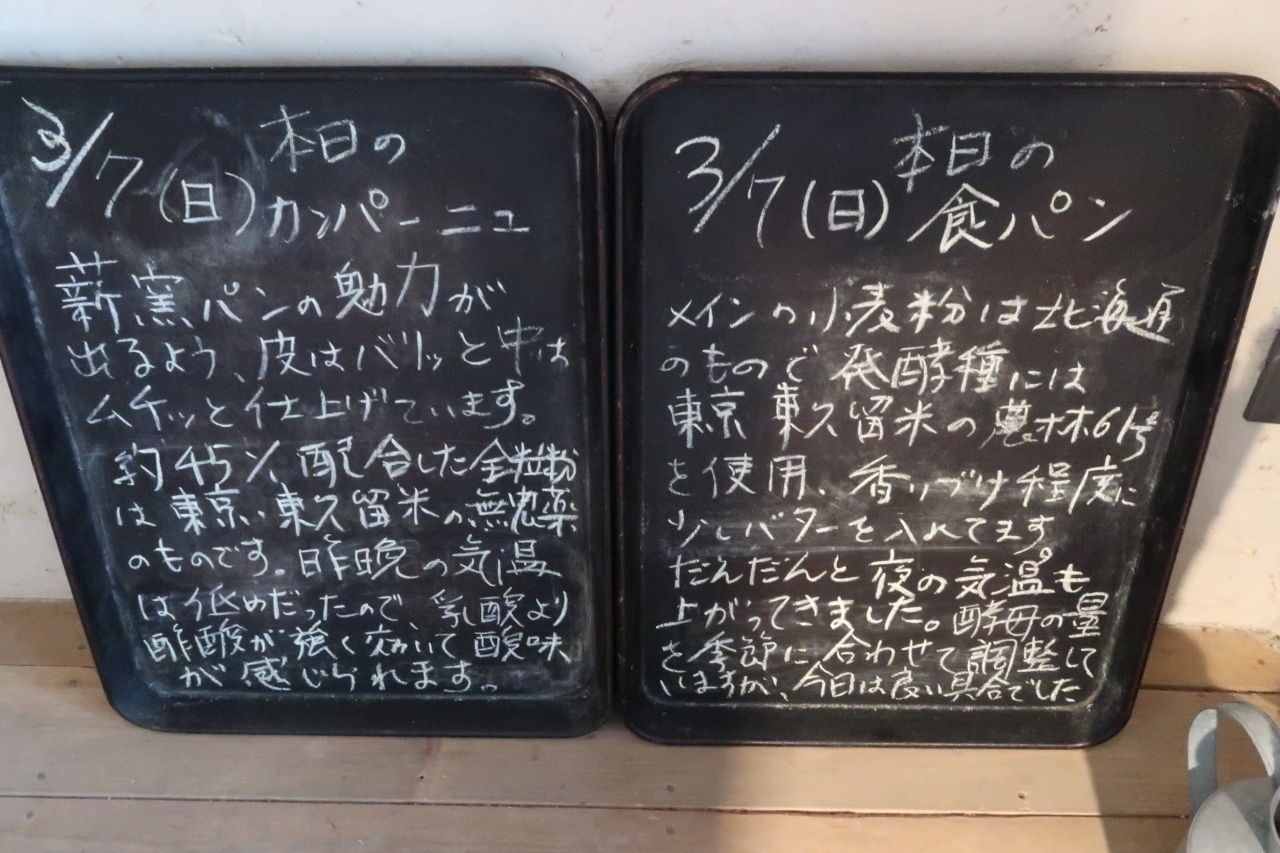 3/7(日) 本日の
カンパーニュ
薪窯パンの魅力が
出るよう、皮はバリッと中は
ムチッと仕上げています。
約45%配合した全粒粉
は東京、東久留米の無農薬
のものです。昨晩の気温
は低めだったので、乳酸より
酢酸が強く効いて酸味
が感じられます。
3/7(日) 本日の
食パン
メインの小麦粉は北海道
のもので発酵種には
東京 東久留米の農林61号
を使用、香りづけ程度に
少しバターを入れてます。
だんだんと夜の気温も
上がってきました。酵母の量
を季節に合わせて調整して
いますが、今日は良い具合でした